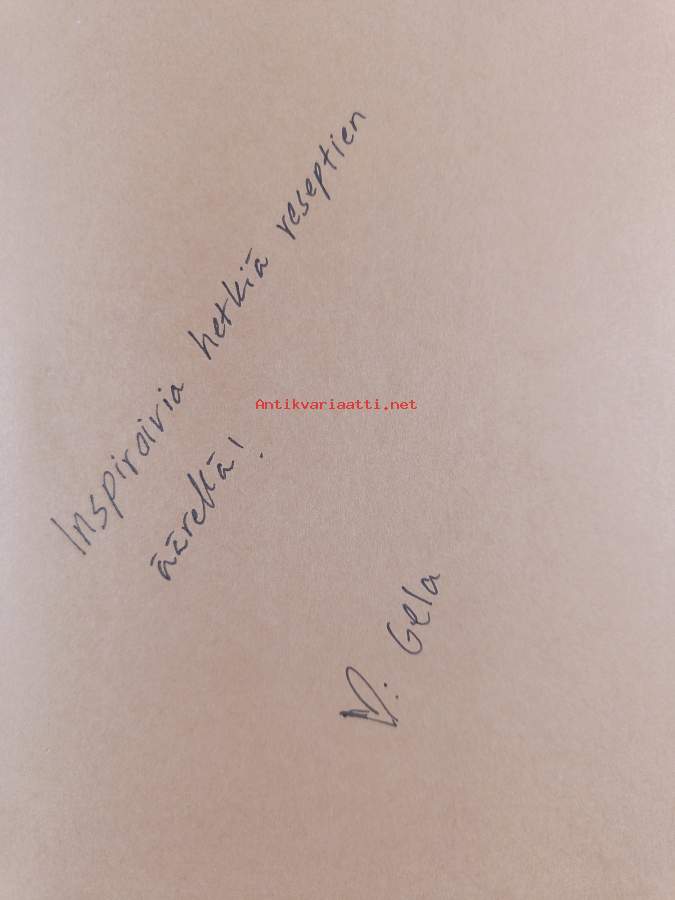 Inspiroivia hetkiä reseptien
äärellä!
Antikvariaatti.net
♡: Gela